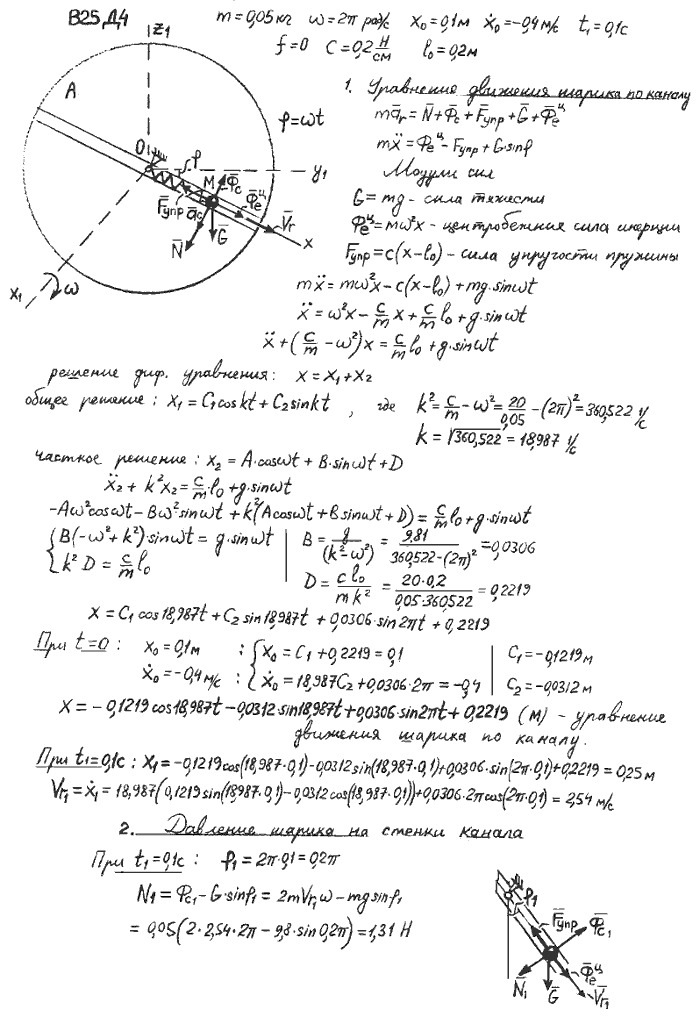 В25 Д4
m=0,05кг ω=2π рад/с x₀=0,1м ẋ₀=-0,4м/с t₁=0,1с
f=0 C=0,2 Н/см l₀=0,2м
z₁
A
φ=ωt
O
φ
y₁
M
Φ̄c
F̄упр
āc
Φ̄eᵘ
V̄r
N̄
Ḡ
x
x₁
ω
1. Уравнение движения шарика по каналу
mār=N̄+Φ̄c+F̄упр+Ḡ+Φ̄eц
mẍ=Φeц-Fупр+G·sinφ
Модули сил
G=mg-сила тяжести
Φeц=mω²x-центробежная сила инерции
Fупр=c(x-l₀)-сила упругости пружины
mẍ=mω²x-c(x-l₀)+mg·sinωt
ẍ=ω²x-c/m x+c/m l₀+g·sinωt
ẍ+(c/m-ω²)x=c/m l₀+g·sinωt
решение диф. уравнения: x=x₁+x₂
общее решение: x₁=C₁coskt+C₂sinkt, где k²=c/m-ω²=20/0,05-(2π)²=360,522 1/с
k=√360,522=18,987 1/с
частное решение: x₂=A·cosωt+B·sinωt+D
ẍ₂+k²x₂=c/m·l₀+g·sinωt
-Aω²cosωt-Bω²sinωt+k²(Acosωt+Bsinωt+D)=c/m l₀+g·sinωt
{B(-ω²+k²)·sinωt=g·sinωt | B=g/(k²-ω²)=9,81/360,522-(2π)²=0,0306
k²D=c/m l₀ D=cl₀/mk²=20·0,2/0,05·360,522=0,2219
x=C₁cos18,987t+C₂sin18,987t+0,0306·sin2πt+0,2219
При t=0: x₀=0,1м :{x₀=C₁+0,2219=0,1 | C₁=-0,1219м
ẋ₀=-0,4м/с : ẋ₀=18,987C₂+0,0306·2π=-0,4 | C₂=-0,0312м
x=-0,1219cos18,987t-0,0312·sin18,987t+0,0306·sin2πt+0,2219 (м) - уравнение
движения шарика по каналу.
При t₁=0,1с: x₁=-0,1219cos(18,987·0,1)-0,0312sin(18,987·0,1)+0,0306·sin(2π·0,1)+0,2219=0,25м
Vr₁=ẋ₁=18,987(0,1219sin(18,987·0,1)-0,0312cos(18,987·0,1))+0,0306·2πcos(2π·0,1)=2,54 м/с
2. Давление шарика на стенки канала
При t₁=0,1с: φ₁=2π·0,1=0,2π
N₁=Φc₁-G·sinφ₁=2mVr₁ω-mgsinφ₁
=0,05(2·2,54·2π-9,8·sin0,2π)=1,31 Н
φ₁
F̄упр
Φ̄c₁
Φ̄eц
N̄₁
Ḡ
V̄r₁